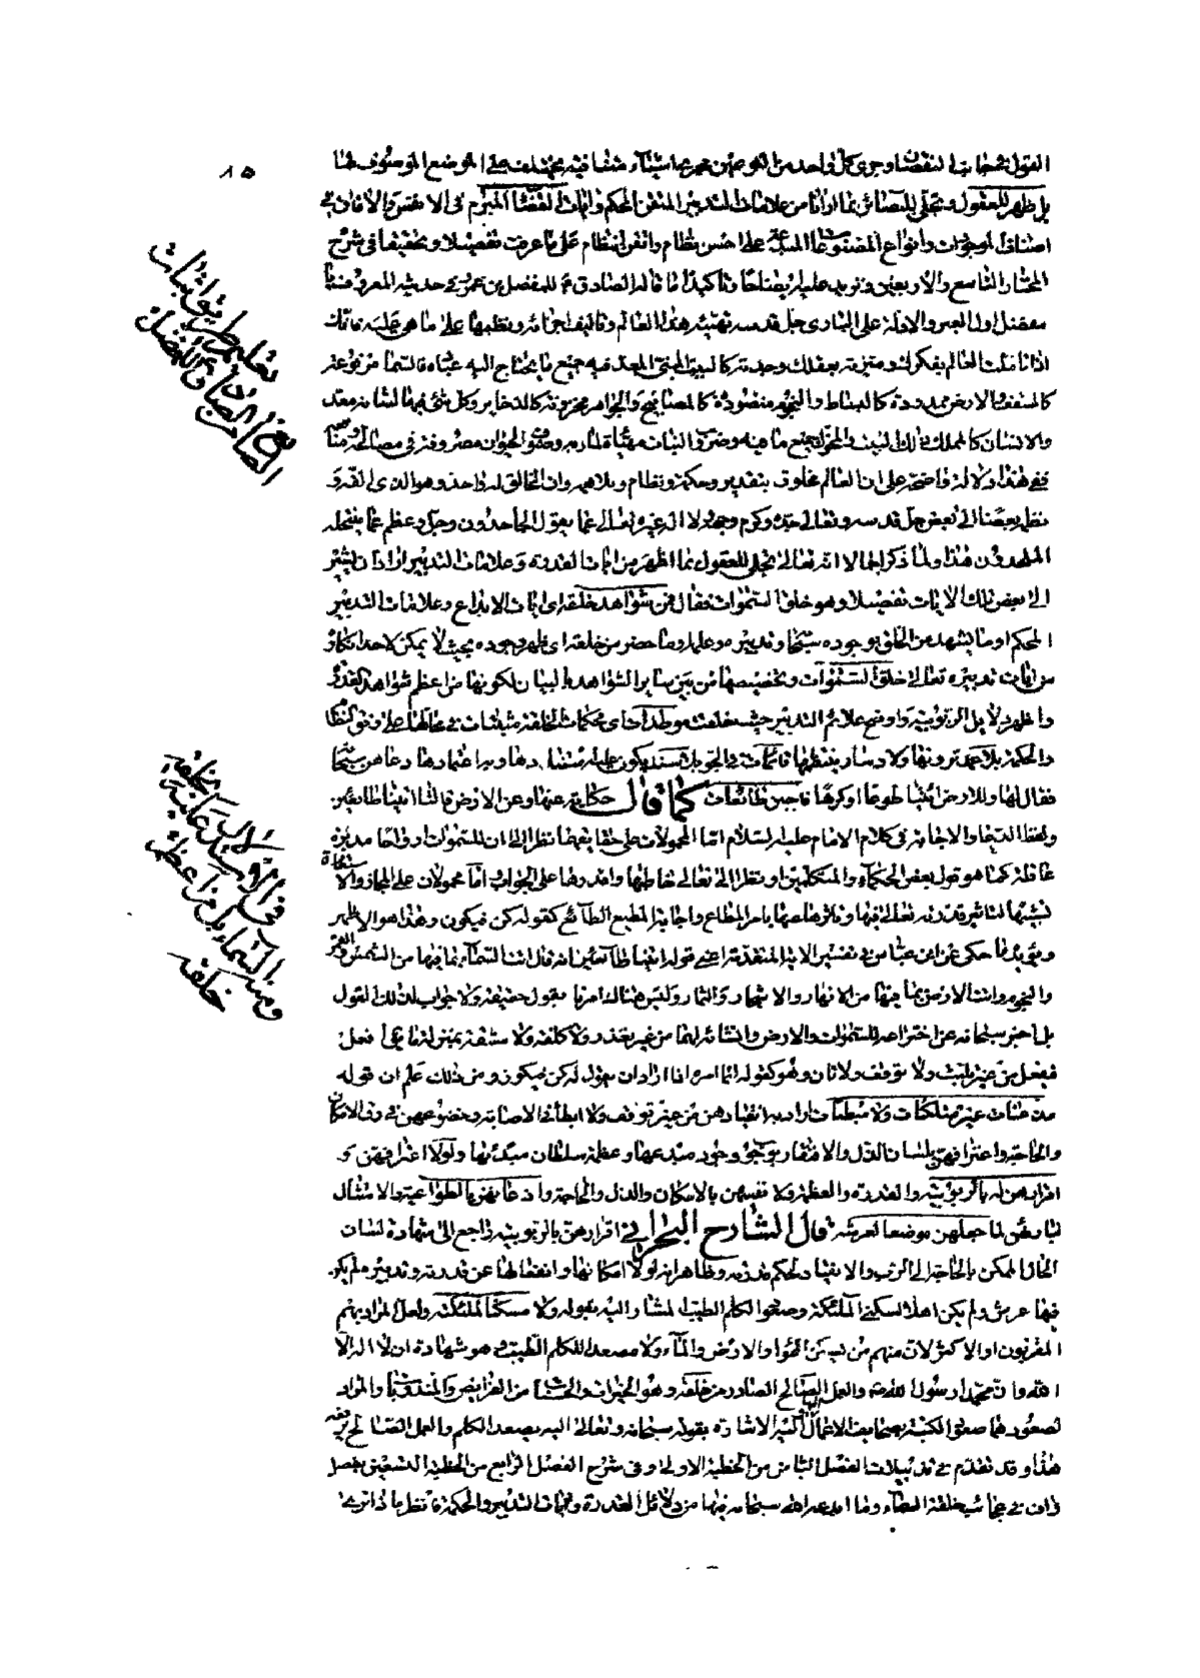 بل ظهر للعقول وتجلى للبصائر بما أرانا من علامات التدبير المتقن المحكم وآيات القضاء المبرم في الانفس والآفاق في
اصناف الموجودات وانواع المصنوعات المبدعة على احسن نظام واتقن انتظام على ما عرفت تفصيلا وتحقيقا في شرح
المختار التاسع والاربعين ونزيد عليه ايضاحا وتاكيدا ما قاله الصادق ع للمفضل بن عمر في حديثه المعروف قال
يا مفضل اول العبر والادلة على الباري جل قدسه تهيئة هذا العالم وتاليف اجزائه ونظمها على ما هي عليه فانك
اذا تاملت العالم بفكرك وميزته بعقلك وجدته كالبيت المبني المعد فيه جميع ما يحتاج اليه عباده فالسماء مرفوعة
كالسقف والارض ممدودة كالبساط والنجوم منضودة كالمصابيح والجواهر مخزونة كالذخاير وكل شيء فيها لشانه معد
والانسان كالمملك ذلك البيت والمخول جميع ما فيه وضروب النبات مهيئا لمآربه وصنوف الحيوان مصروفة في مصالحه ومنافعه
ففي هذا دلالة واضحة على ان العالم مخلوق بتقدير وحكمة ونظام وملائمة وان الخالق له واحد وهو الذي الفه و
نظمه بعضا الى بعض جل قدسه وتعالى جده وكرم وجهه ولا اله غيره تعالى عما يقول الجاحدون وجل وعظم عما ينتحله
الملحدون هذا ولما ذكر اجمالا انه تعالى تجلى للعقول بما اظهر من آيات القدرة وعلامات التدبير اراد ان يشير
الى بعض تلك الآيات تفصيلا وهو خلق السموات فقال فمن شواهد خلقه اي آيات الابداع وعلامات التدبير
المحكم او ما يشهد من الخلق بوجوده سبحانه وتدبيره وعلمه او ما حضر من خلقه اي ظهر وجوده بحيث لا يمكن لاحد انكاره
من آيات تدبيره تعالى خلق السموات وتخصيصها من بين ساير الشواهد بالبيان لكونها من اعظم شواهد القدرة
واظهر دلايل الربوبية واوضح علائم التدبير حيث خلقت موطدات اي محكمات الخلقة مثبتات في محالها على وفق النظام
والحكمة بلا عمد ترونها ولا دسار ينتظمها قائمات في الجو بلا سند يكون عليه استنادها وبه اعتمادها دعاهن سبحانه
فقال لها وللارض ائتيا طوعا او كرها فاجبن طائعات كما قال حكاية عنها وعن الارض قالتا اتينا طائعين
ولفظ الدعاء والاجابة في كلام الامام عليه السلام اما محمولان على حقايقهما نظرا الى ان للسموات ارواحا مدبرة
عاقلة كما هو قول بعض الحكماء والمتكلمين او نظرا الى انه تعالى خاطبها واقدرها على الجواب اما محمولان على المجاز والاستعارة
تشبيها لتاثير قدرته تعالى فيها وتاثرها عنها بامر المطاع واجابة المطيع الطائع كقوله كن فيكون وهذا هو الاظهر
ويؤيده ما حكى عن ابن عباس في تفسير الآية المتقدمة اعني قوله اتينا طائعين انه قال اتت السماء بما فيها من الشمس والقمر
والنجوم واتت الارض بما فيها من الانهار والاشجار والثمار وليس هناك امر بقول حقيقة ولا جواب لذلك القول
بل اخبر سبحانه عن اختراعه للسموات والارض وانشائه لهما من غير تعذر ولا كلفة ولا مشقة بمنزلة ما يقال افعل
فيفعل من غير تلبث ولا توقف ولا تان وهو كقوله انما امره اذا اراد ان يقول له كن فيكون ومن ذلك علم ان قوله
مذعنات غير متلكئات ولا مبطئات اراد به انقيادهن من غير توقف ولا ابطاء في الاصابة وخضوعهن في رق الامكان
والحاجة واعترافهن بلسان الذل والافتقار بوجوب وجود مبدعها وعظمة سلطان مبدئها ولولا اعترافهن و
اقرارهن له بالربوبية والقدرة والعظمة ولانفسهن بالامكان والذل والحاجة واذعانهن بالطواعية والامتثال
لبارئهن لما جعلهن موضعا لعرشه قال الشارح البحراني اقرارهن بالربوبية راجع الى شهادة لسان
الحال الممكن بالحاجة الى الرب والانقياد لحكم قدرته وظاهر انه لولا امكانها وانفعالها عن قدرته وتدبيره لم يكن
فيها عرش ولم يكن اهلا لسكنى الملئكة وصعود الكلم الطيب المشار اليه بقوله ولا مسكنا لملئكته ولعل المراد بهم
المقربون او الاكثر لان منهم من يسكن الهواء والارض والماء ولا مصعدا للكلم الطيب وهو شهادة ان لا اله الا
الله وان محمدا رسول الله ص والعمل الصالح الصادر من خلقه وهو الخيرات والحسنات من الفرايض والمندوبات والمراد
بصعودهما صعود الكتبة بصحايف الاعمال اليها واليه الاشارة بقوله سبحانه وتعالى اليه يصعد الكلم والعمل الصالح يرفعه
هذا وقد تقدم في تذييلات الفصل الثامن من الخطبة الاولى وفي شرح الفصل الرابع من الخطبة التسعين فصل
واف في عجائب خلقة السماء وما ابدعه الله سبحانه فيها من دلائل القدرة وآيات التدبير والحكمة فانظر ماذا ترى